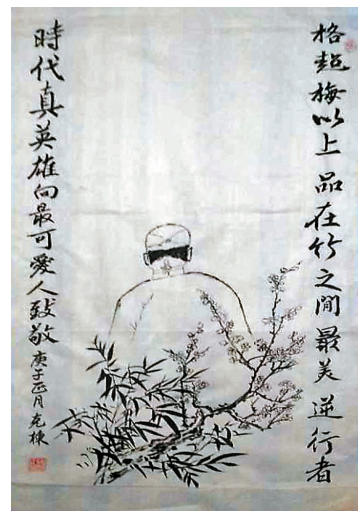 格超梅以上品在竹之間最美逆行者
時代真英雄向最可愛人致敬
庚子正月克棟